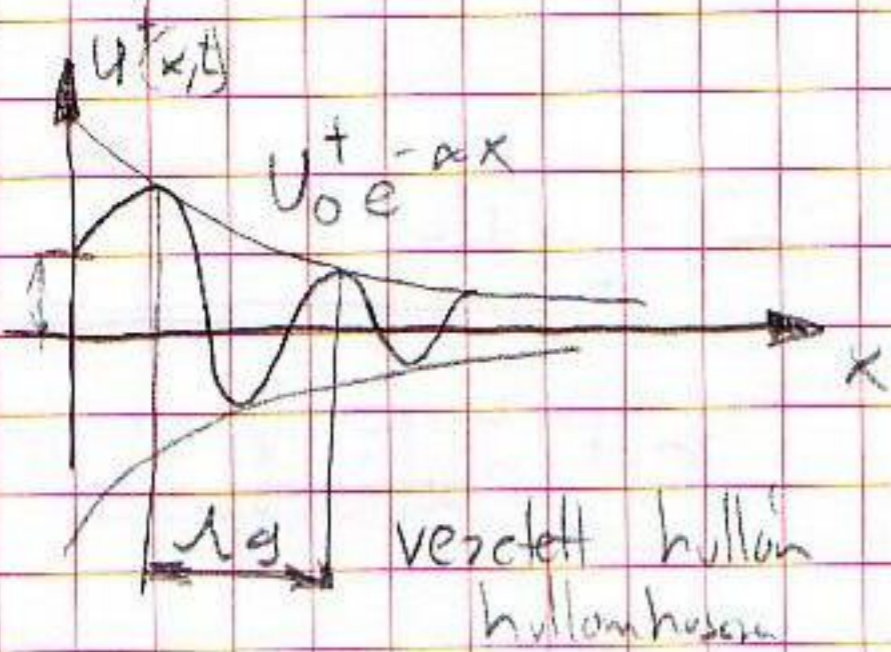 u⁺(x,t)
U₀⁺e^-αx
x
λg vezetett hullám
hullámhossza